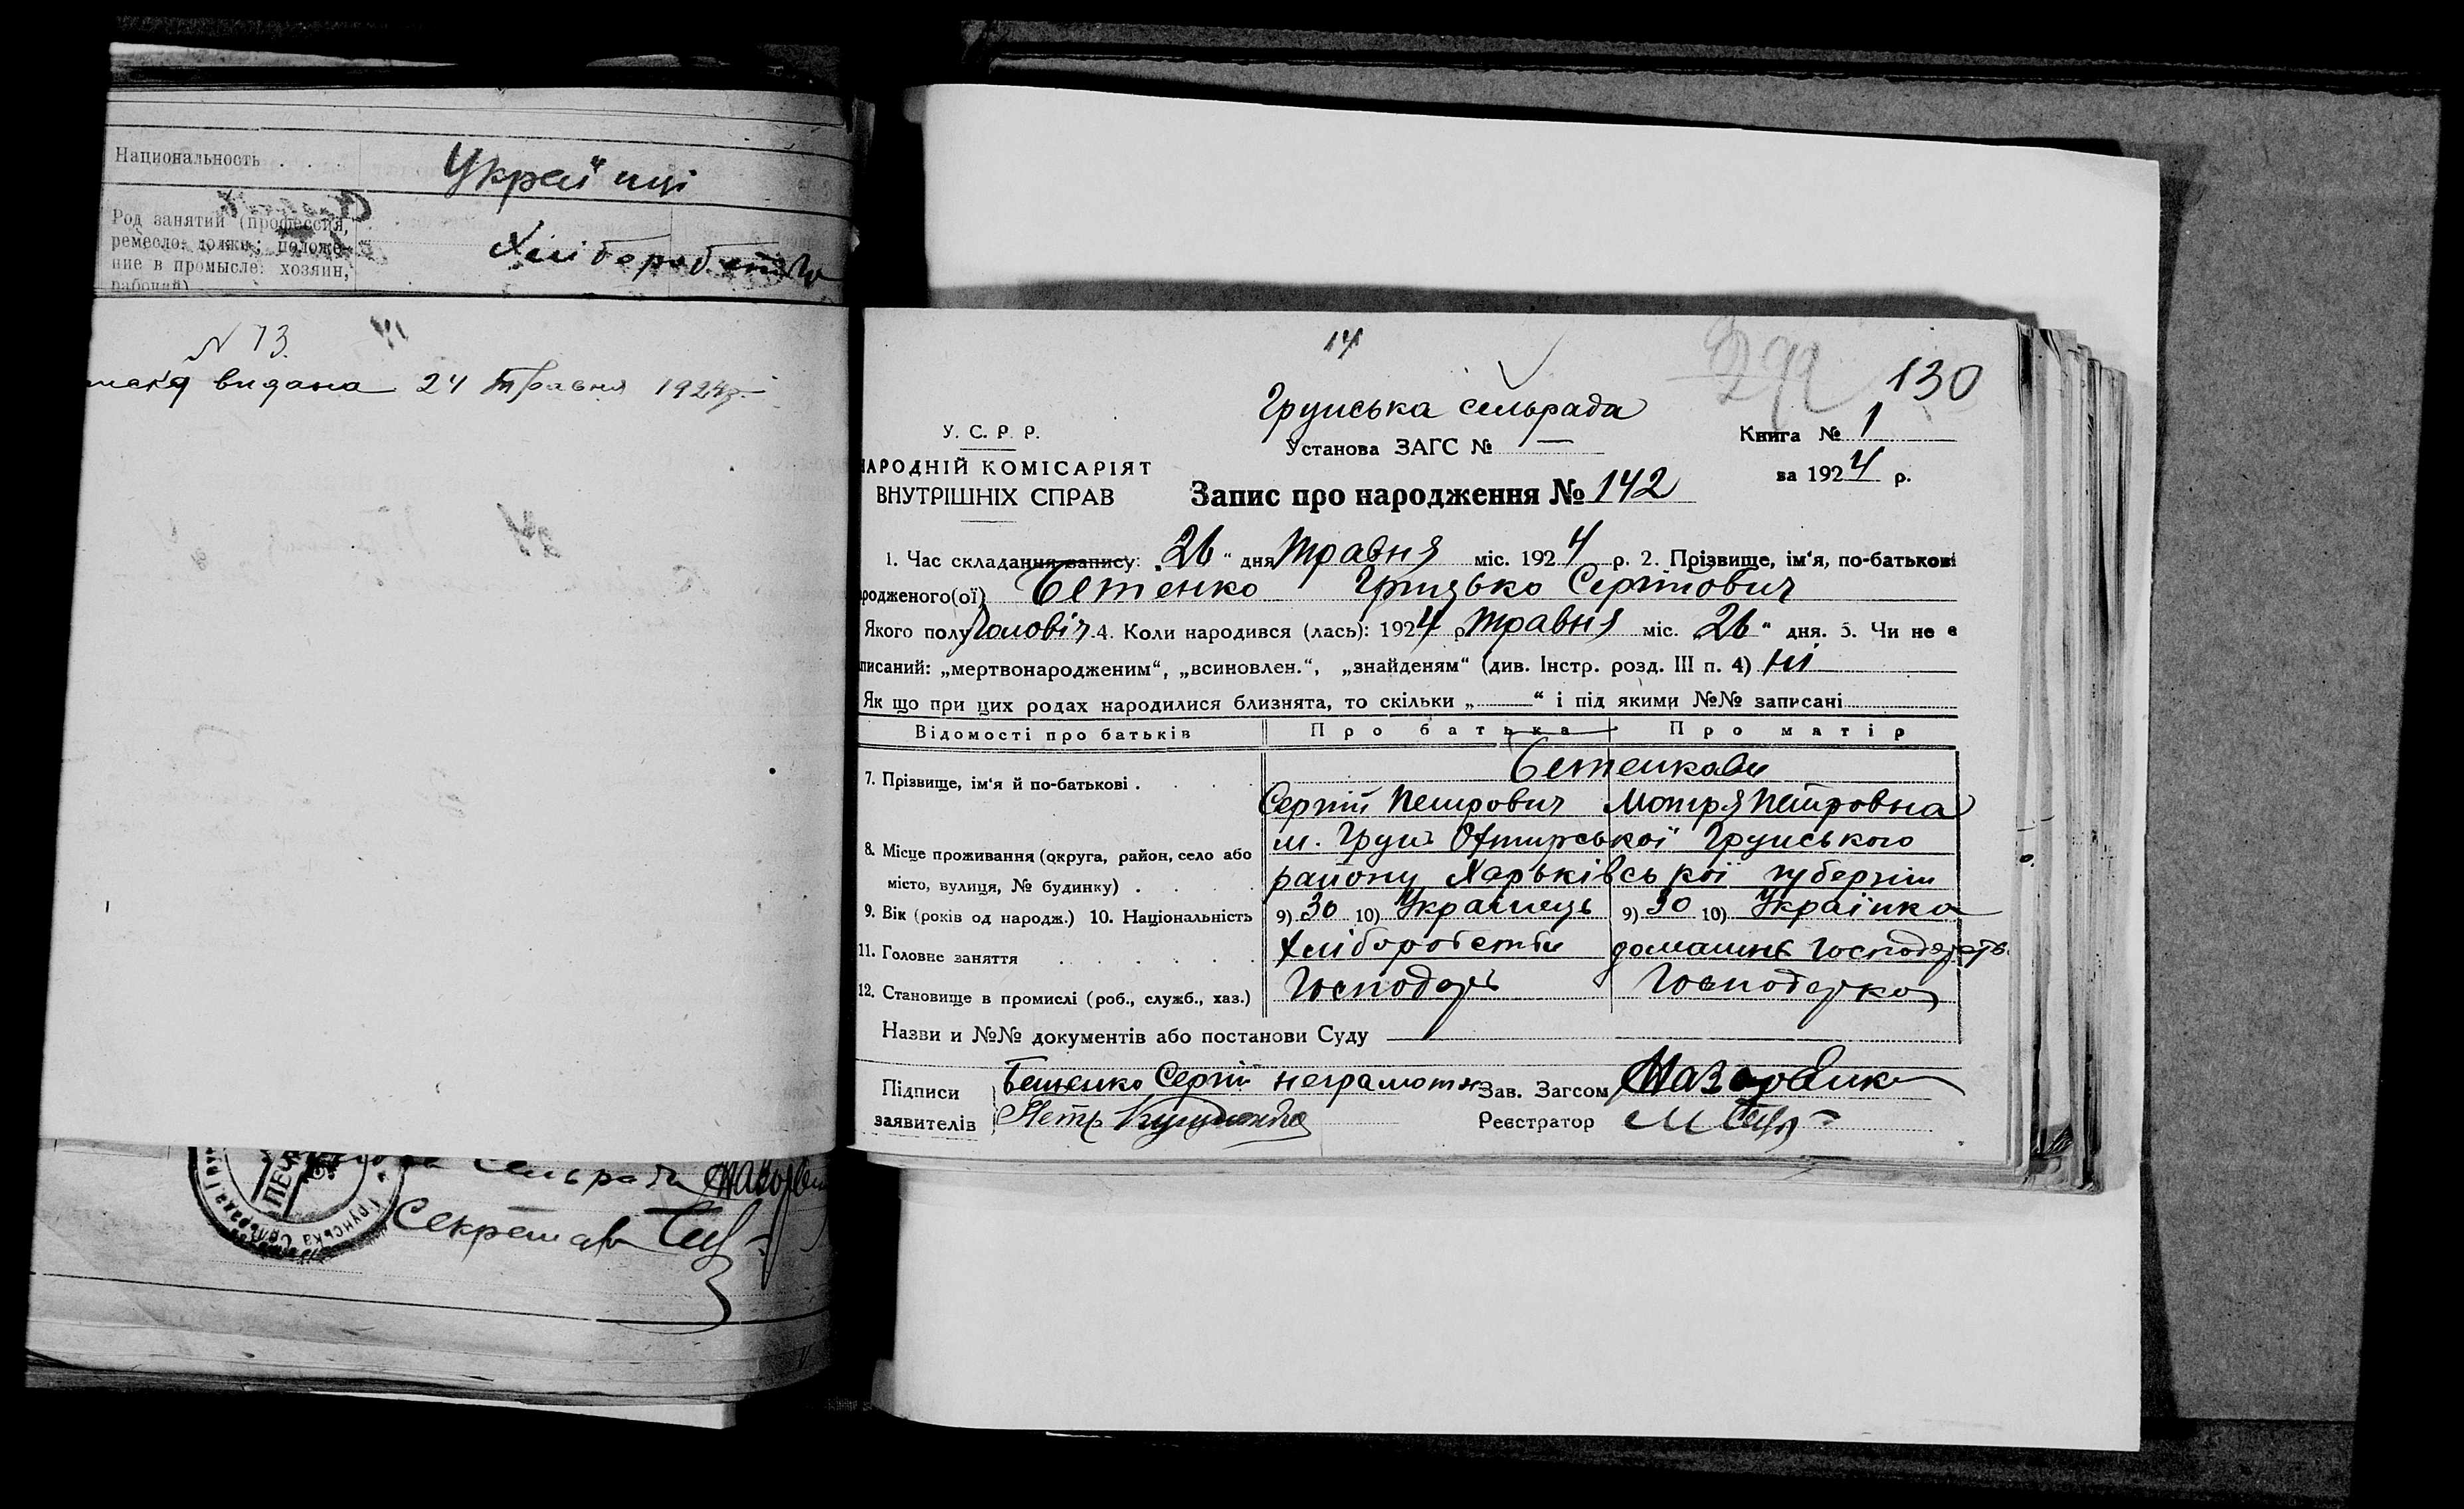 Национальность . . .
Украї нці
Род занятий (профессия,
ремесло: должн; положе-
ние в промысле: хозяин,
рабочий)
Хліборобство
N 73.
видана 24 травня 1924р.
Сельради
Секретар
14
130
Грунська сельрада
У. С. Р. Р.
Установа ЗАГС № —
Книга № 1
НАРОДНІЙ КОМІСАРІЯТ
ВНУТРІШНІХ СПРАВ
за 1924 р.
Запис про народження № 142
1. Час складання запису: „26“ дня Травня міс. 1924 р. 2. Прізвище, ім'я, по-батькові
родженого(ої) Бетенко Грицько Сергійович
Якого полу Чоловіч. 4. Коли народився (лась): 1924 р Травня міс. „26“ дня. 5. Чи не є
писаний: „мертвонародженим“, „всиновлен.“, „знайденям“ (див. Інстр. розд. III п. 4) Ні
Як що при цих родах народилися близнята, то скільки „——“ і під якими №№ записані
Відомості про батьків Про батька Про матір
Бетенкови
7. Прізвище, ім'я й по-батькові . . . .
Сергій Петрович Мотря Петровна
м. Грунь Охтирської Грунського
8. Місце проживання (округа, район, село або
місто, вулиця, № будинку) . . . .
району Харьківської губернии
9. Вік (років од народж.) 10. Національність 9) 30 10) Украинець 9) 30 10) Українка
11. Головне заняття . . . . . . Хліборобство домашнє Господарств.
12. Становище в промислі (роб., служб., хаз.) Господарь Господарка
Назви и №№ документів або постанови Суду ——
Підписи
заявителів
Бетенко Сергій неграмотн
Петь
Зав. Загсом
Реєстратор